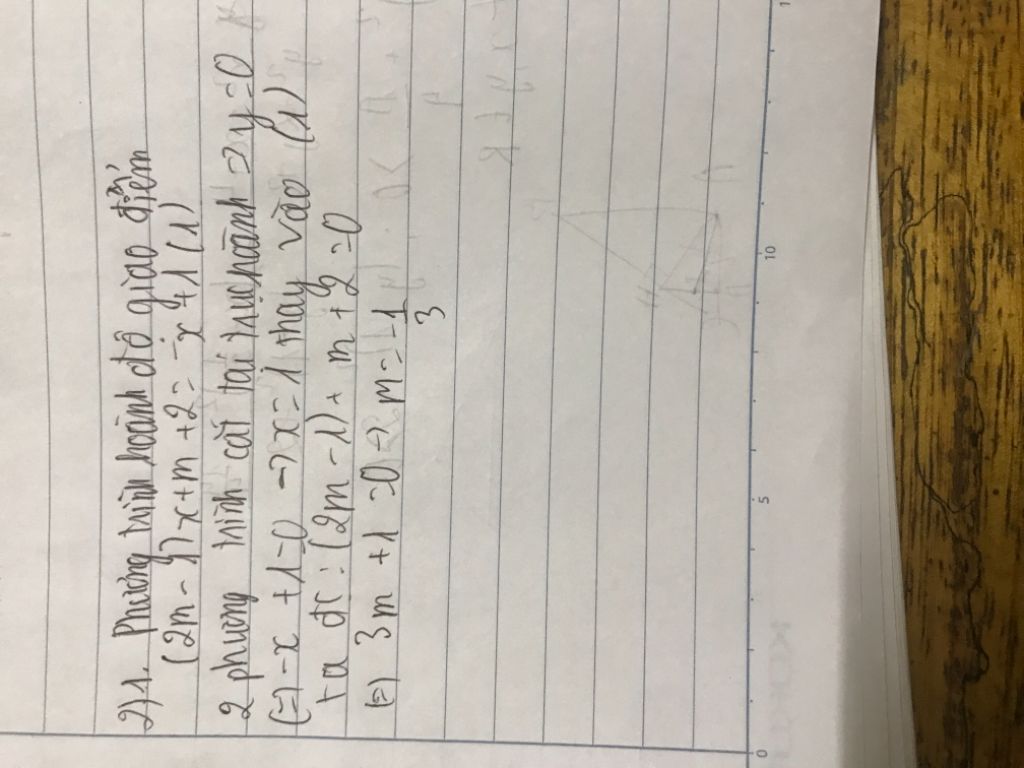 2) 1. Phương trình hoành độ giao điểm
(2m - 1) x + m + 2 = -x + 1 (1)
2 phương trình cắt tại trục hoành => y = 0
(=) -x + 1 = 0 -> x = 1 thay vào (1)
ta đc : (2m - 1) + m + 2 = 0
(=) 3m + 1 = 0 -> m = -1/3
0 5 10